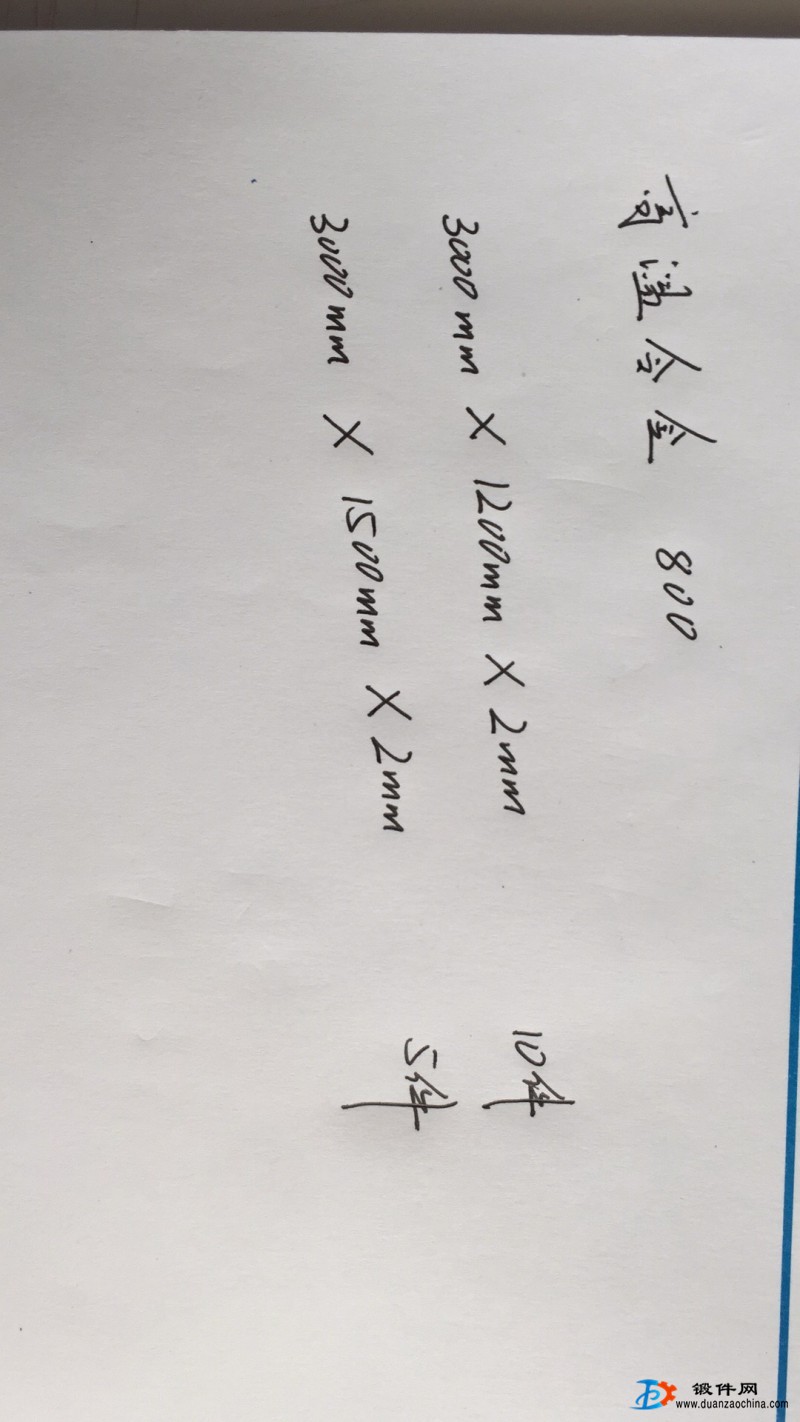 高温合金 800
3000mm X 1200mm X 2mm 10件
3000mm X 1500mm X 2mm 5件
锻件网
www.duanzaochina.com